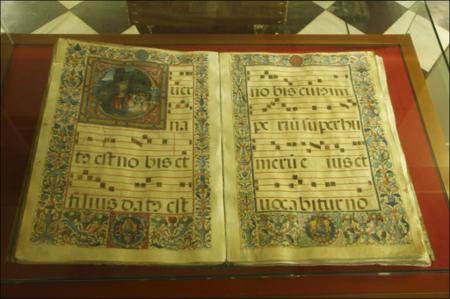 uer
na
tꝰ est no bis et
filius datꝰ est
no bis cuius im
pe riū super hu
merū e ius et
uocabitur no